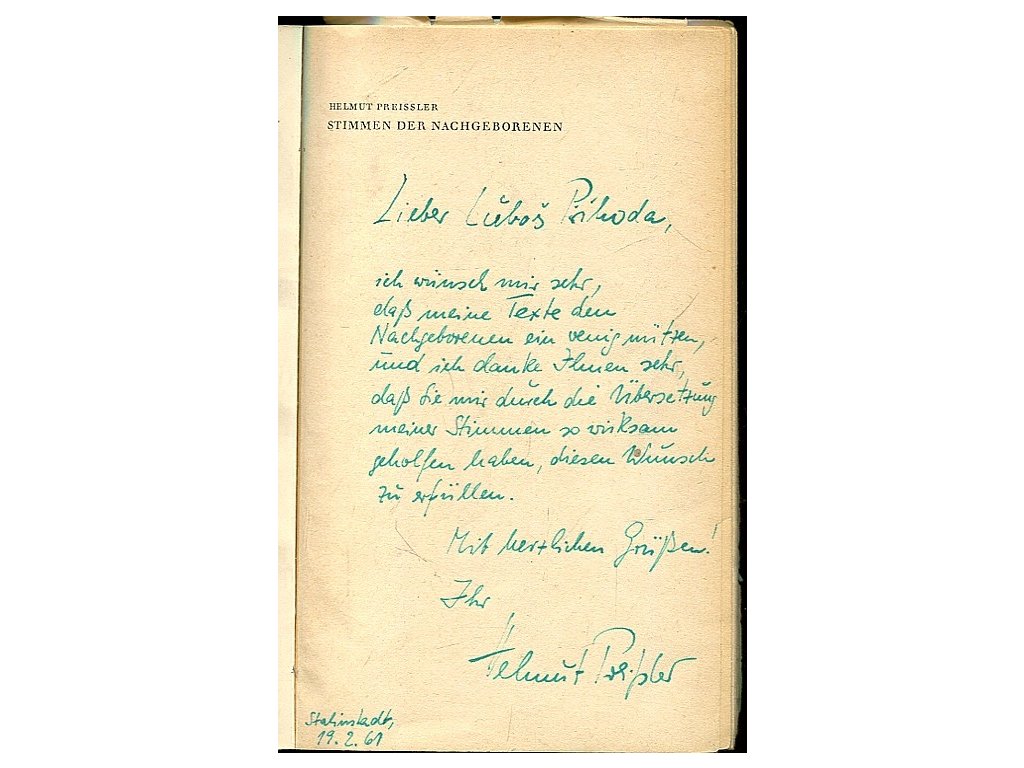 HELMUT PREISSLER
STIMMEN DER NACHGEBORENEN
Lieber Luboš Příhoda,
ich wünsch mir sehr,
daß meine Texte den
Nachgeborenen ein wenig nützen,
und ich danke Ihnen sehr,
daß Sie mir durch die Übersetzung
meiner Stimmen so wirksam
geholfen haben, diesen Wunsch
zu erfüllen.
Mit herzlichen Grüßen!
Ihr
Helmut Preißler
Stalinstadt,
19.2.61